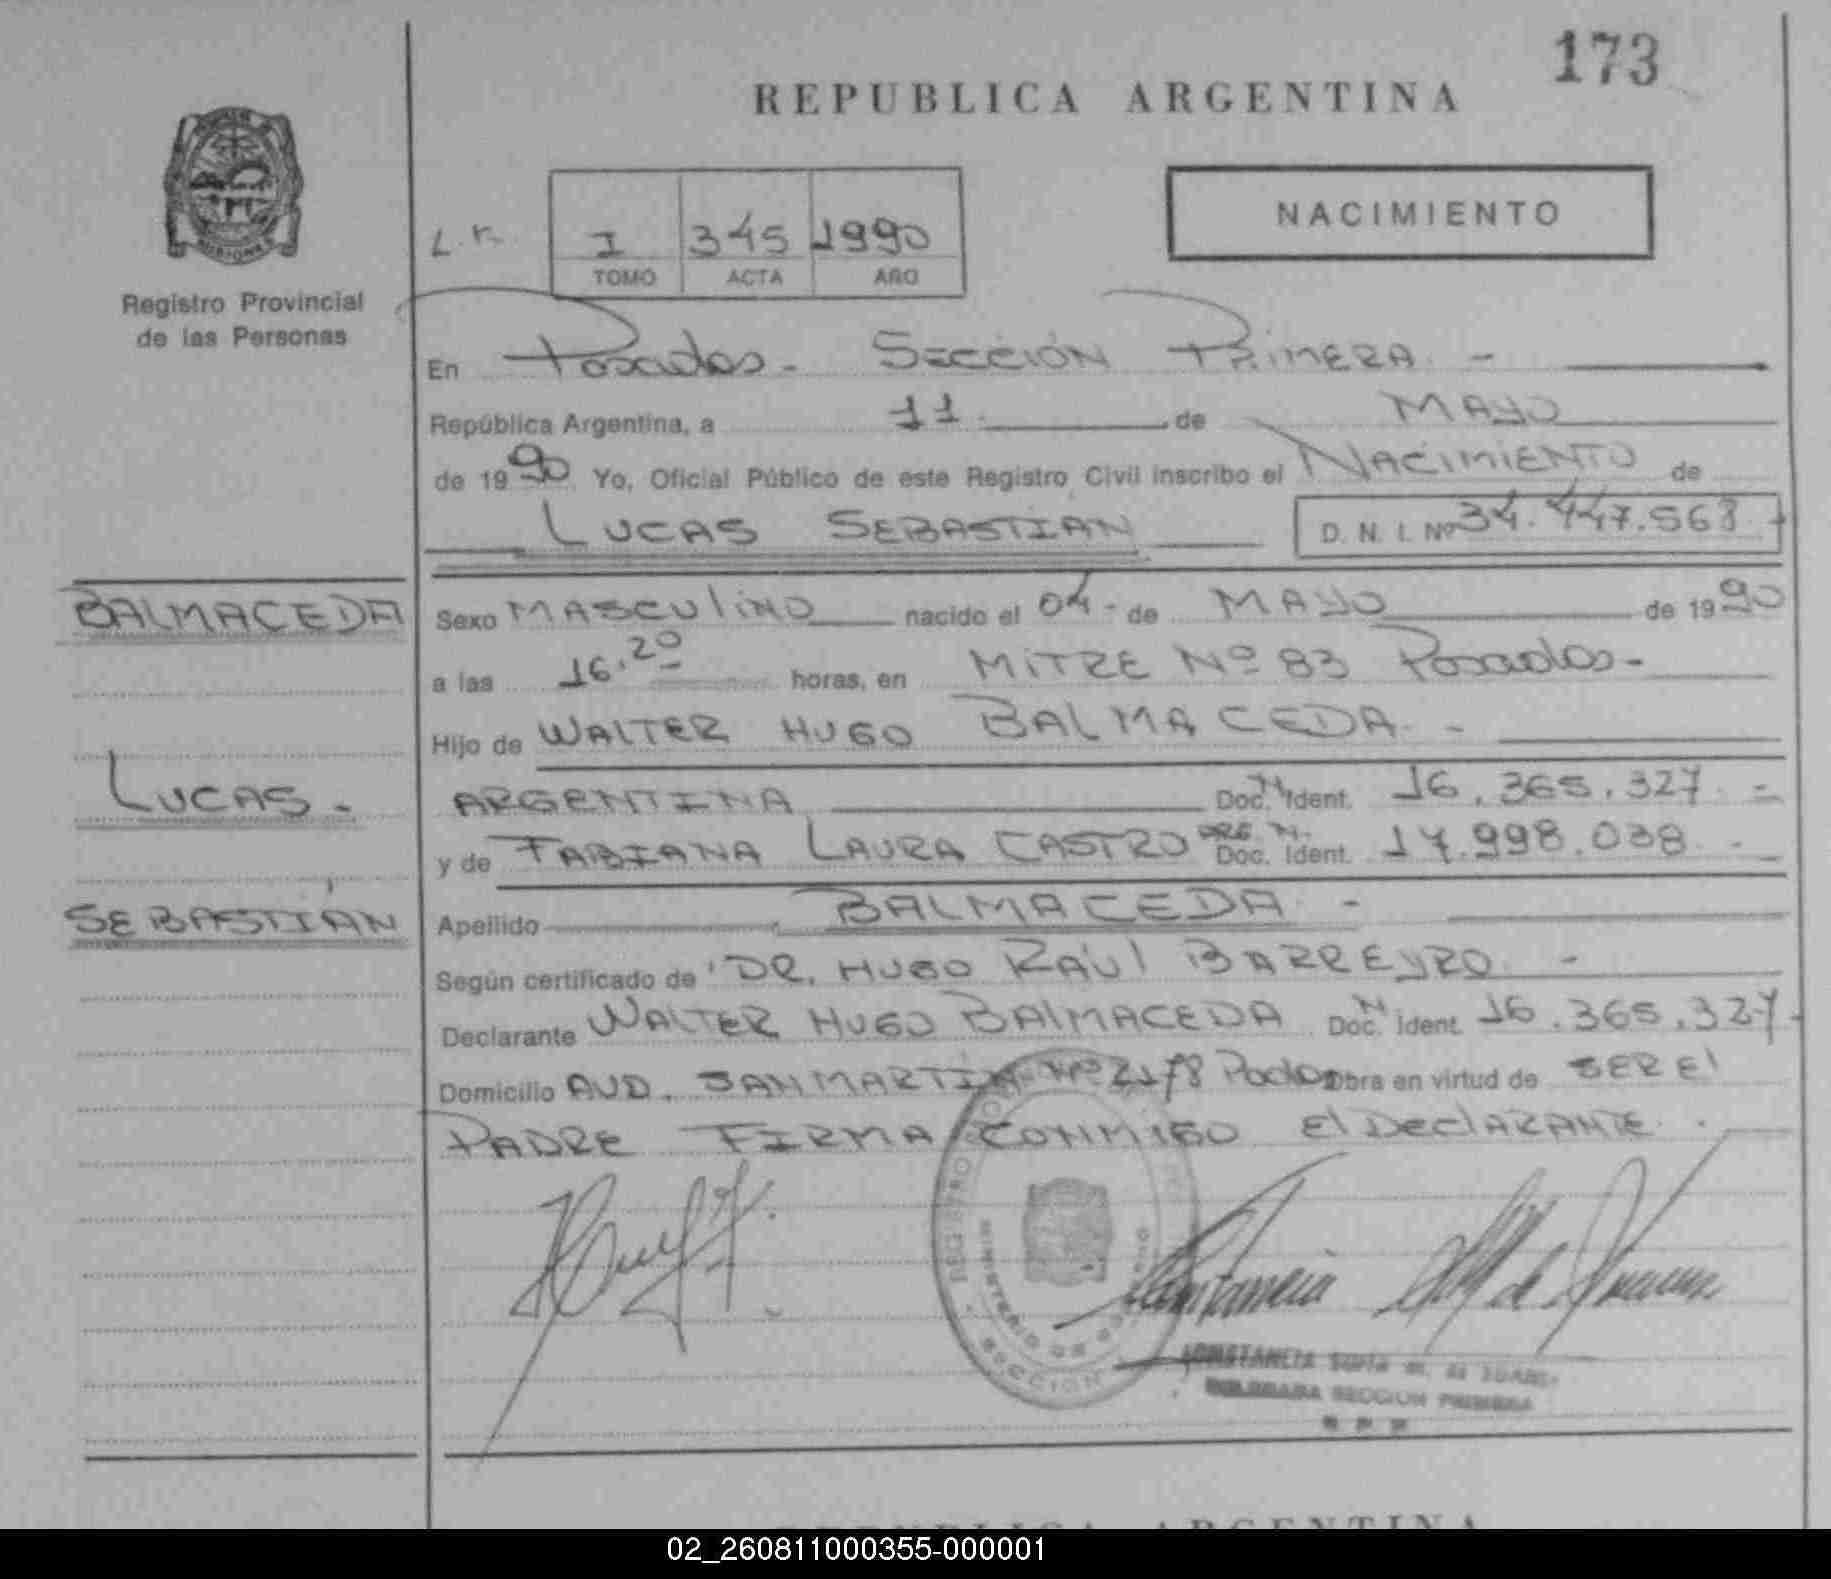 173
REPUBLICA ARGENTINA
NACIMIENTO
I 345 1990
TOMO ACTA AÑO
MISIONES
Registro Provincial
de las Personas
En Posadas - SECCIÓN PRIMERA. -
República Argentina, a 11. de MAYO
de 1990 Yo, Oficial Público de este Registro Civil inscribo el NACIMIENTO de
LUCAS SEBASTIAN D. N. I. Nº 34.447.568 -
BALMACEDA
Sexo MASCULINO nacido el 04 - de MAYO de 1990
a las 16.20 horas, en MITRE Nº 83 Posadas -
Hijo de WALTER HUGO BALMACEDA. -
LUCAS -
ARGENTINA Doc. N Ident. 16.365.327 -
y de FABIANA LAURA CASTRO ARG. N. Doc. Ident. 17.998.038 -
SEBASTIÁN
Apellido BALMACEDA -
Según certificado de DR. HUGO RAÚL BARREYRO. -
Declarante WALTER HUGO BALMACEDA Doc. N Ident. 16.365.327 -
Domicilio AVD. SAN MARTIN Nº 2178 Pdas Obra en virtud de SER El
PADRE FIRMA CONMIGO El DEClARANTE.
REGISTRO
MINISTERIO DE GOBIERNO
SECCION
CONSTANCIA
SECCION PRIMERA
REPUBLICA ARGENTINA
02_260811000355-000001